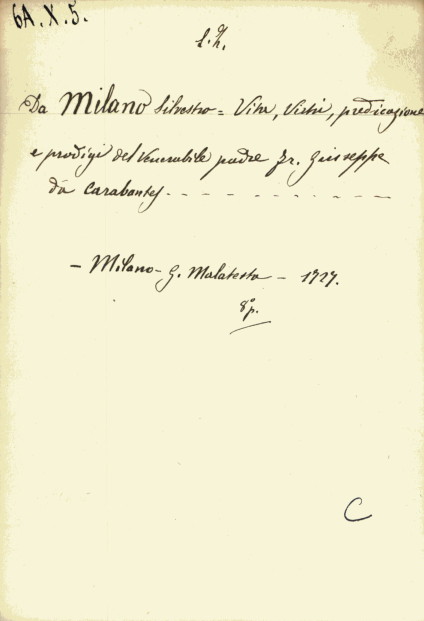 6A. X. 5.
Da Milano Silvestro = Vita, Virtù, predicazione
e prodigi del Venerabile padre Fr. Giuseppe
da Carabantes - - - - - - - - -
- Milano - G. Malatesta - 1727.
8° p.
C